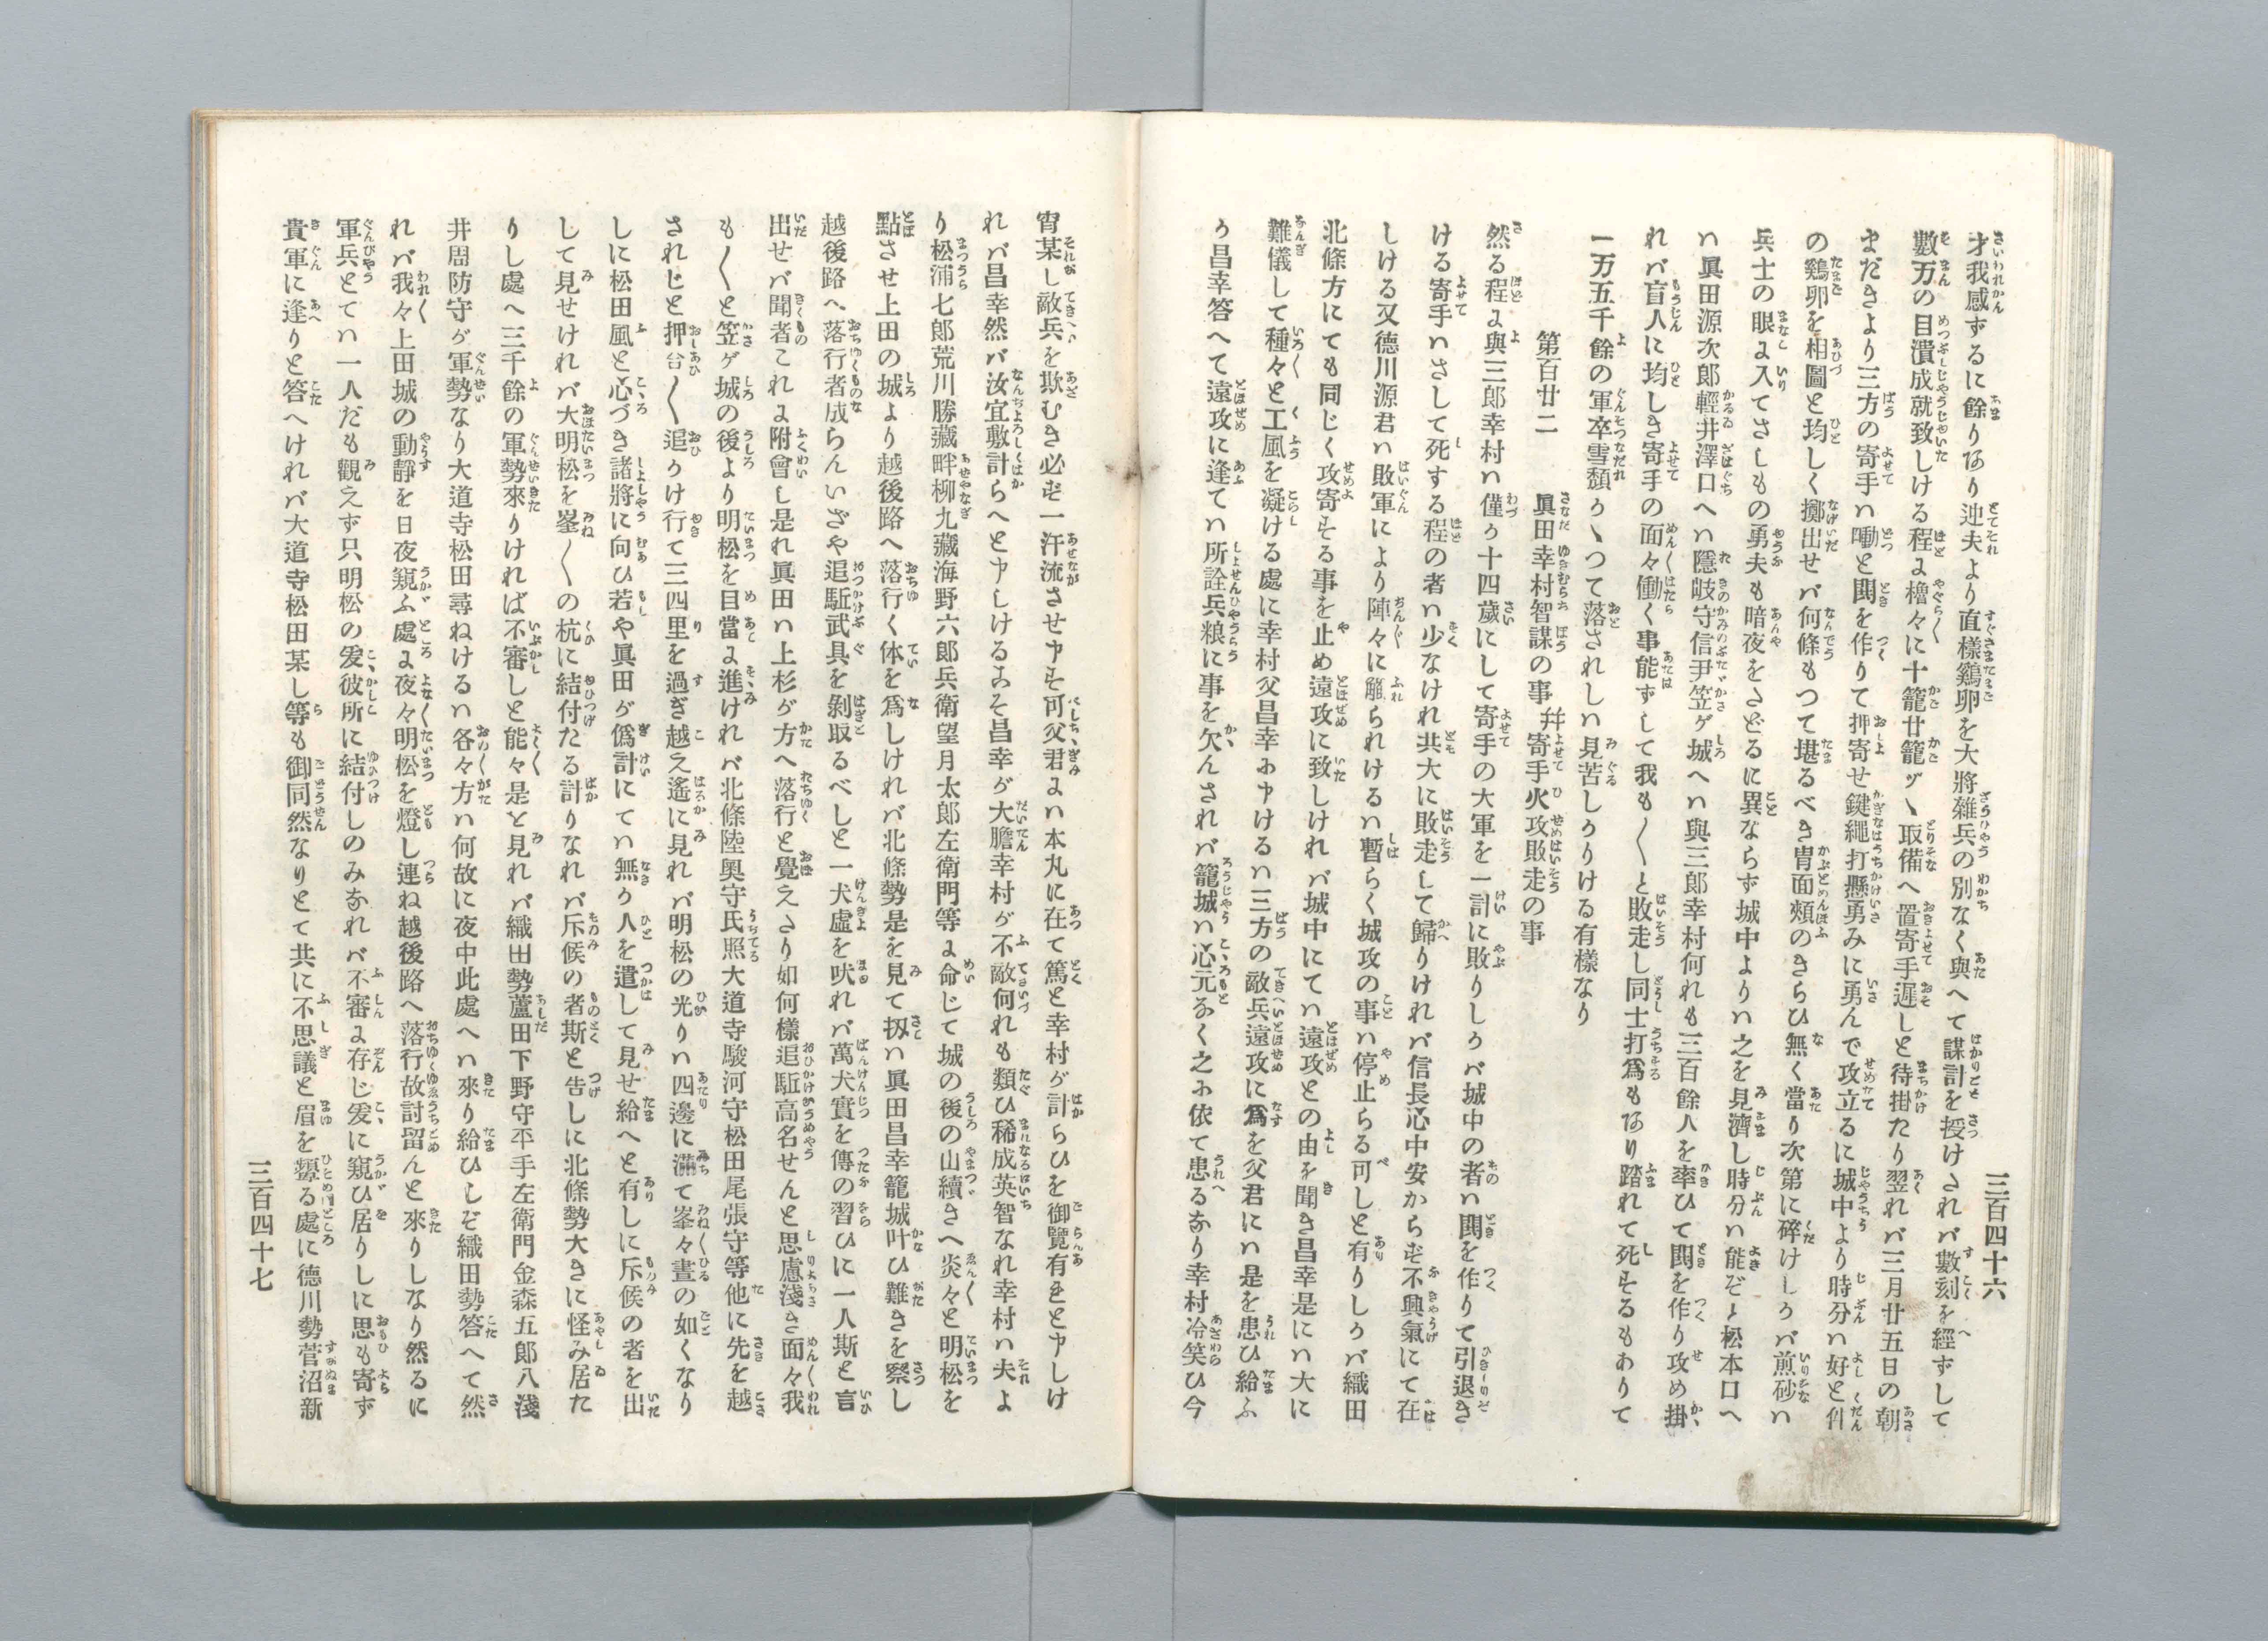 三百四十六
才我感ずるに餘りあり迚夫より直樣鷄卵を大將雜兵の別なく與へて謀計を授けされバ數刻を經ずして
數万の目潰成就致しける程に櫓々に十籠廿籠ヅヽ取備へ置寄手遲しと待掛たり翌れバ三月廿五日の朝
まだきより三方の寄手ハ噇と鬨を作りて押寄せ鍵繩打懸勇みに勇んで攻立るに城中より時分ハ好と件
の鷄卵を相圖と均しく擲出せバ何條もつて堪るべき冑面頬のきらひ無く當り次第に碎けしかバ煎砂ハ
兵士の眼に入てさしもの勇夫も暗夜をさどるに異ならず城中よりハ之を見濟し時分ハ能ぞと松本口へ
ハ眞田源次郎輕井澤口へハ隱岐守信尹笠ゲ城へハ與三郎幸村何れも三百餘人を率ひて鬨を作り攻め掛
れバ盲人に均しき寄手の面々働く事能ずして我も〱と敗走し同士打爲もあり踏れて死するもありて
一万五千餘の軍卒雪頽かヽつて落されしハ見苦しかりける有樣なり
第百廿二　眞田幸村智謀の事 幷寄手火攻敗走の事
然る程に與三郎幸村ハ僅か十四歲にして寄手の大軍を一計に敗りしかバ城中の者ハ鬨を作りて引退き
ける寄手ハさして死する程の者ハ少なけれ共大に敗走して歸りけれバ信長心中安からず不興氣にて在
しける又德川源君ハ敗軍により陣々に觸られけるハ暫らく城攻の事ハ停止らる可しと有りしかバ織田
北條方にても同じく攻寄する事を止め遠攻に致しけれバ城中にてハ遠攻との由を聞き昌幸是にハ大に
難儀して種々と工風を凝ける處に幸村父昌幸に申けるハ三方の敵兵遠攻に爲を父君にハ是を患ひ給ふ
か昌幸答へて遠攻に逢てハ所詮兵粮に事を欠んされバ籠城ハ心元なく之に依て患るなり幸村冷笑ひ今
宵某し敵兵を欺むき必ず一汗流させ申す可父君にハ本丸に在て篤と幸村が計らひを御覽有きと申しけ
れバ昌幸然バ汝宜敷計らへと申しけるこそ昌幸が大膽幸村が不敵何れも類ひ稀成英智なれ幸村ハ夫よ
り松浦七郎荒川勝藏畔柳九藏海野六郎兵衛望月太郎左衛門等に命じて城の後の山續きへ炎々と明松を
點させ上田の城より越後路へ落行く体を爲しけれバ北條勢是を見て扨ハ眞田昌幸籠城叶ひ難きを察し
越後路へ落行者成らんいざや追駈武具を剝取るべしと一犬虛を吠れバ萬犬實を傳の習ひに一人斯と言
出せバ聞者これに附會し是れ眞田ハ上杉が方へ落行と覺えさり如何樣追駈高名せんと思慮淺き面々我
も〱と笠ゲ城の後より明松を目當に進けれバ北條陸奧守氏照大道寺駿河守松田尾張守等他に先を越
されじと押合〱追かけ行て三四里を過ぎ越え遙に見れバ明松の光りハ四邊に滿て峯々晝の如くなり
しに松田風と心づき諸將に向ひ若や眞田が僞計にてハ無か人を遣して見せ給へと有しに斥候の者を出
して見せけれバ大明松を峯〱の杭に結付たる計りなれバ斥候の者斯と告しに北條勢大きに怪み居た
りし處へ三千餘の軍勢來りければ不審しと能々是を見れバ織田勢蘆田下野守平手左衛門金森五郎八淺
井周防守が軍勢なり大道寺松田尋ねけるハ各々方ハ何故に夜中此處へハ來り給ひしぞ織田勢答へて然
れバ我々上田城の動靜を日夜窺ふ處に夜々明松を燈し連ね越後路へ落行故討留んと來りしなり然るに
軍兵とてハ一人だも觀えず只明松の爰彼所に結付しのみなれバ不審に存じ爰に窺ひ居りしに思も寄ず
貴軍に逢りと答へけれバ大道寺松田某し等も御同然なりとて共に不思議と眉を顰る處に德川勢菅沼新
三百四十七